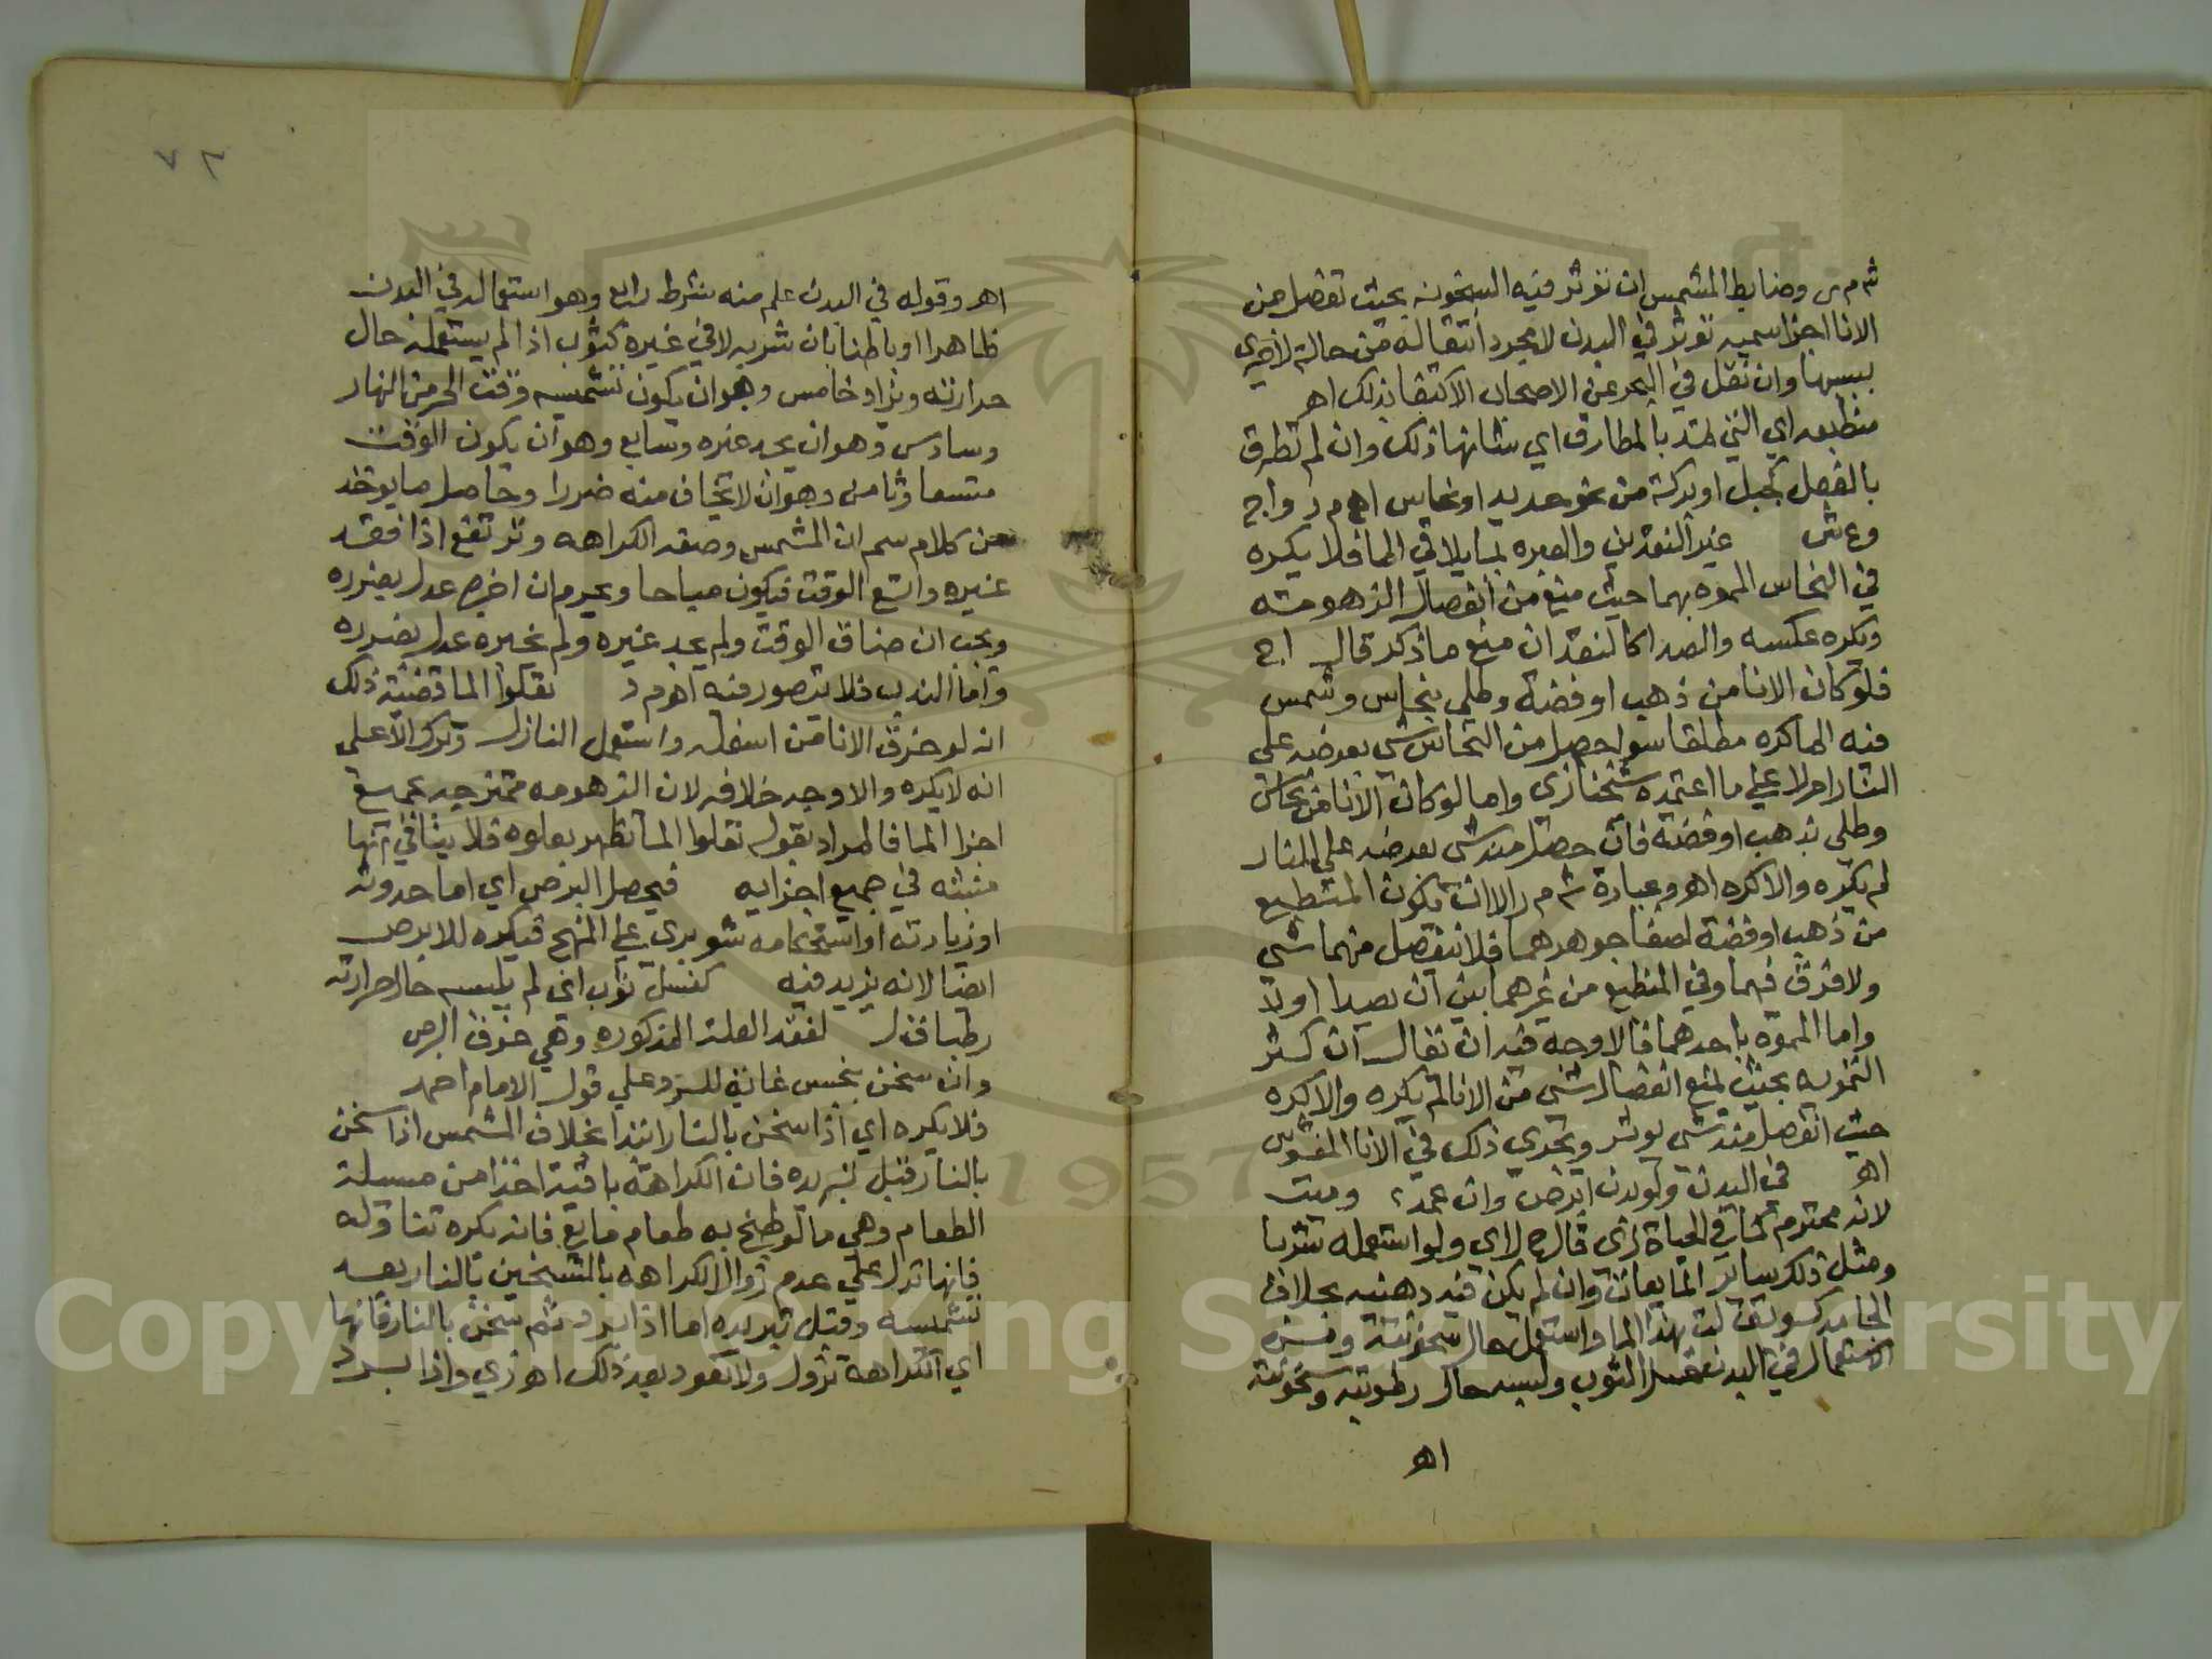 ش م ر وضابط المشمس ان توثر فيه السخونه بحيث تفصل من
الانا اجزا سميه توثر في البدن لا مجرد انتقاله من حالة لاخرى
بسببها وان نقل في البحر عن الاصحاب الاكتفا بذلك اهـ
منطبعه اي التي تمتد بالمطارق اي شانها ذلك وان لم تطرق
بالفعل كجبل او بركة من نحو حديد او نحاس اهـ م ر و اج
وع ش غير النقدين والعبره بما يلاقي الما فلا يكره
في النحاس المموه بهما حيث منع من انفصال الزهومة
ويكره عكسه والصدا كالنقد ان منع ما ذكر قال اج
فلو كان الانا من ذهب او فضة وطلي بنحاس وشمس
فيه الما كره مطلقا سوا حصل من النحاس شي بعرضه على
النار ام لا على ما اعتمده شيخنا زي واما لو كان الانا من نحاس
وطلي بذهب او فضة فان حصل منه شي بعرضه على النار
لم يكره والا كره اهـ وعبارة ش م ر الا ان يكون المنطبع
من ذهب او فضة لصفا جوهرهما فلا ينفصل منهما شي
ولا فرق فيهما وفي المنطبع من غيرهما بين ان يصدا او لا
واما المموه باحدهما فالاوجه فيه ان يقال ان كثر
التمويه بحيث يمنع انفصال شي من الانا لم يكره والا كره
حيث انفصل منه شي يوثر ويجري ذلك في الانا المغشوش
اهـ في البدن ولو بدن ابرص وان عمه وميت
لانه محترم كما في الحياة زي قال ح ل اي ولو استعمله شربا
ومثل ذلك ساير المايعات وان لم يكن فيه دهنيه بخلاف
الجامد كسويق لت بهذا الما واستعمل حال سخونته وفسره
الاستعمال في البدن غسل الثوب ولبسه حال رطوبته وسخونته
اهـ
٧٢
اهـ وقوله في البدن علم منه شرط رابع وهو استعماله في البدن
ظاهرا او باطنا بان شربه لا في غيره كثوب اذا لم يستعمله حال
حرارته ويزاد خامس وهو ان يكون تشميسه وقت الحر من النهار
وسادس وهو ان يجد غيره وسابع وهو ان يكون الوقت
متسعا وثامن وهو ان لا يخاف منه ضررا وحاصل ما يوخذ
من كلام سم ان المشمس وصفه الكراهه وترتفع اذا فقد
غيره واتسع الوقت فيكون مباحا ويحرم ان اخبره عدل بضرره
ويجب ان ضاق الوقت ولم يجد غيره ولم يخبره عدل بضرره
واما الندب فلا يتصور فيه اهـ م د تعلوا الما قضية ذلك
انه لو خرق الانا من اسفله واستعمل النازل وترك الاعلى
انه لا يكره والاوجه خلافه لان الزهومه ممتزجه بجميع
اجزا الما فالمراد بقوله تعلوا الما تظهر بعلوه فلا ينافي انها
منبثه في جميع اجزايه فيحصل البرص اي اما حدوثه
او زيادته او استحكامه شوبري على المنهج فيكره للابرص
ايضا لانه يزيد فيه كغسل ثوب اي لم يلبسه حال حرارته
رطبا ق ل لفقد العلة المذكوره وهي خوف البرص
وان سخن بنجس غاية للرد على قول الامام احمد
فلا يكره اي اذا سخن بالنار ابتدا بخلاف المشمس اذا سخن
بالنار قبل تبريده فان الكراهة باقية اخذا من مسيلة
الطعام وهي ما لو طبخ به طعام مايع فانه يكره تناوله
فانها تدل على عدم زوال الكراهه بالتسخين بالنار بعد
تشميسه وقبل تبريده اما اذا برد ثم سخن بالنار فانها
اي الكراهة تزول ولا تعود بعد ذلك اهـ زي واذا برد
Copyright © King Saud University
1957